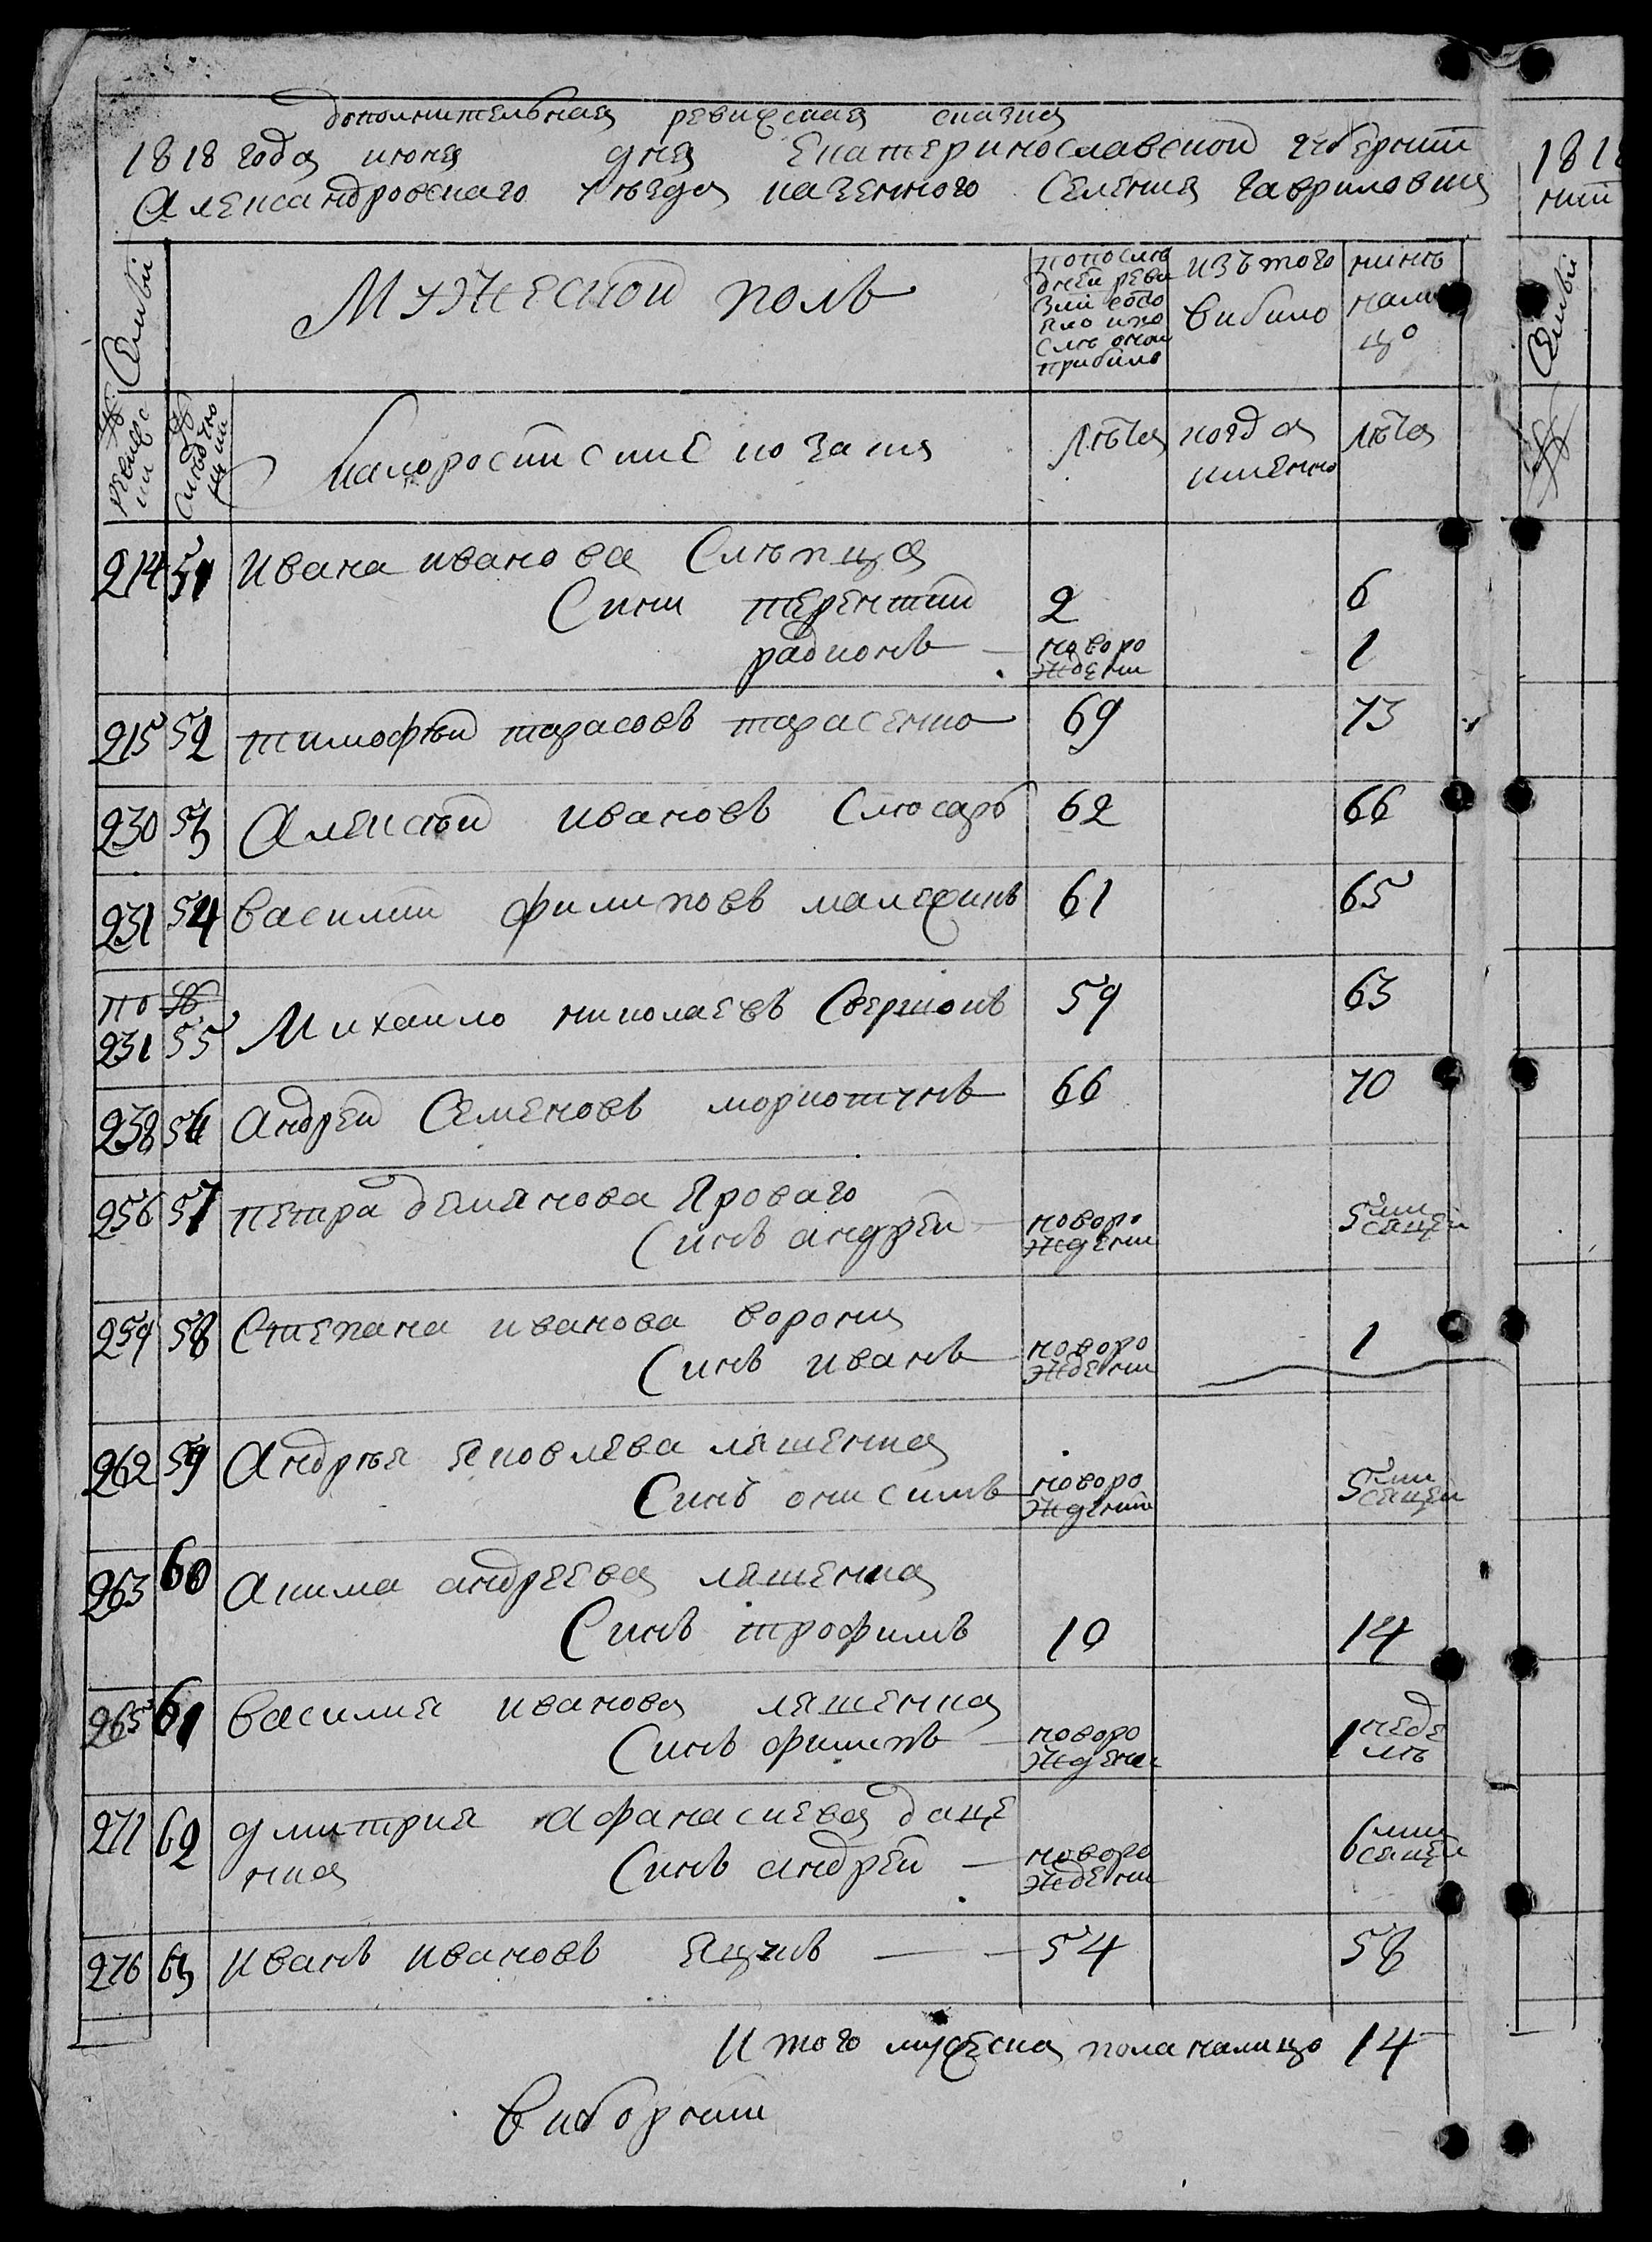 дополнительная ревижская сказка
1818 года июня дня Екатеринославской губернии
Александровскаго уѣзда казенного Селения гавриловки
1818
нии
Семьи
Мужеской полъ
попослѣ
дней реви
зии состо
яло и по
слѣ оной
прибило
изъ того
вибило
нинѣ
нали
цо
Семьи
№ ревижс
кии
№ слѣдую
щии
малоросийские козаки
лѣта
когда
именно
лѣта
№
214 51 Ивана иванова Слѣпца
Сини терентий 2 6
радионъ — новоро
ждени 1
215 52 тимофѣй тарасовъ тарасенко 69 73
230 53 Алексѣй ивановъ Слюсарь 62 66
231 54 василий филиповъ малежикъ 61 65
по №
231 55 Михайло николаевъ Свержокъ 59 63
238 56 Андрей Семеновъ моркотунъ 66 70
256 57 петра демянова Яроваго
Синъ андрей — новоро
ждени 5 ми
сяцей
259 58 Степана иванова ворони
Синъ иванъ — новоро
ждени 1
262 59 Андрѣя яковлева ляшенка
Синъ онисимъ — новоро
ждении 5 ми
сяцей
263 60 Акима андреева ляшенка
Синъ трофимъ 10 14
265 61 василия иванова ляшенка
Синъ филипъ — новоро
ждени 1 неде
лѣ
271 62 дмитрия Афанасиева даце
нка Синъ андрей — новоро
ждени 6 ми
сяцей
276 63 иванъ ивановъ Яцукъ — — 54 58
Итого мужеска пола налицо 14
виборний